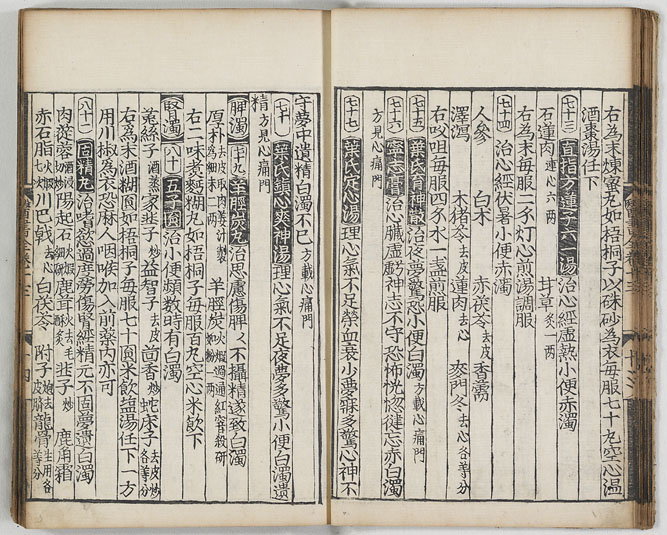 右為末煉蜜丸如梧桐子以硃砂為衣每服七十丸空心温
酒棗湯任下
七十三 直指方蓮子六一湯 治心經虛熱小便赤濁
石蓮肉連心六兩 甘草炙一兩
右為末每服二錢燈心煎湯調服
七十四 治心經伏暑小便赤濁
人參 白朮 赤茯苓去皮 香薷
澤瀉 木猪苓去皮 蓮肉去心 麥門冬去心各等分
右㕮咀每服四錢水一盞煎服
七十五 葉氏育神散 治夜夢驚恐小便白濁方載心痛門
七十六 寧志膏 治心臟虛虧神志不守恐怖恍惚健忘赤白濁
方見心痛門
七十七 葉氏定心湯 理心氣不足榮血衰少夢寐多驚心神不
守夢中遺精白濁不已方載心痛門
七十八 葉氏鎮心爽神湯 理心氣不足夜夢多驚小便白濁遺
精方見心痛門
脾濁 七十九 羊脛炭丸 治思慮傷脾脾不攝精遂致白濁
厚朴去皮取肉姜汁製二兩 羊脛炭火煅過通紅窨殺研如粉一兩
右二味煮麪糊丸如梧桐子每服百丸空心米飲下
腎濁 八十 五子圓 治小便頻數時有白濁
菟絲子酒蒸 家韭子炒 益智子去皮 茴香炒 蛇床子去皮炒各等分
右為末酒糊圓如梧桐子每服七十圓米飲盐湯任下一方
用川椒為衣恐麻人咽喉加入前藥内亦可
八十一 固精丸 治嗜慾過度勞傷腎經精元不固夢遺白濁
肉蓯蓉酒浸 陽起石火煅 鹿茸 韭子炒 鹿角霜
赤石脂火煅七次 川巴戟去心 白茯苓 附子炮去皮臍 龍骨生用各